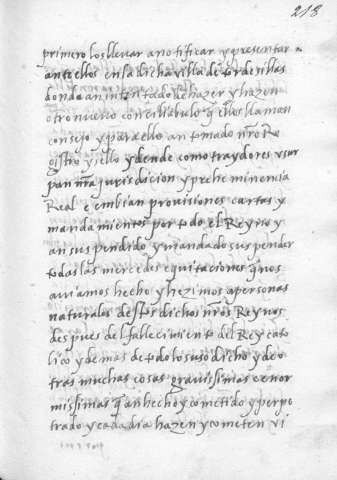 218
primero los llevar a notificar y presentar
ante ellos en la dicha villa de tordesillas
donde an intentado de hazer y hazen
otro nuevo conciliabulo q̃ ellos llaman
consejo y para ello an tomado nr̃o Re
gistro y sello y dende como traydores vsur
pan nr̃a jurisdicion y prehe minencia
Real e embian provisiones cartas y
manda mientos por todo el Reyno y
an sus pendido y mandado sus pender
todas las mercedes e quitaciones q̃ nos
aviamos hecho y hezimos a personas
naturales destos dichos nr̃os Reynos
des pues del fallecimiento del Rey cato
lico y de mas de todo lo suso dicho y de o
tras muchas cosas gravissimas e enor
missimas q̃ an hecho y cometido y perpe
trado y cada dia hazen y cometen vi